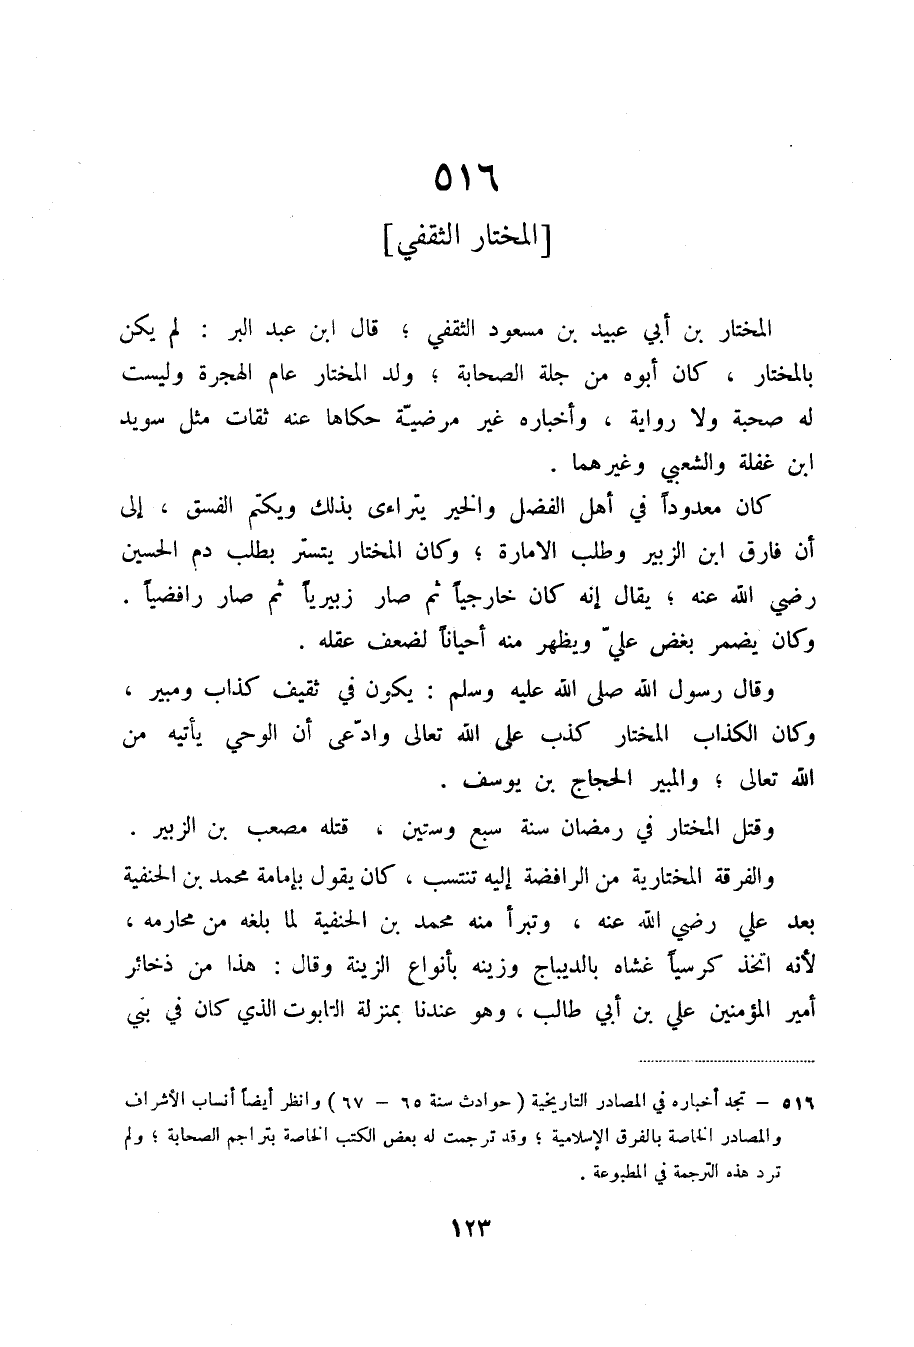 ٥١٦
[المختار الثقفي]
المختار بن أبي عبيد بن مسعود الثقفي ؛ قال ابن عبد البر : لم يكن
بالمختار ، كان أبوه من جلة الصحابة ؛ ولد المختار عام الهجرة وليست
له صحبة ولا رواية ، وأخباره غير مرضيّة حكاها عنه ثقات مثل سويد
ابن غفلة والشعبي وغيرهما .
كان معدوداً في أهل الفضل والخير يتراءى بذلك ويكتم الفسق ، إلى
أن فارق ابن الزبير وطلب الامارة ؛ وكان المختار يتستّر بطلب دم الحسين
رضي الله عنه ؛ يقال إنه كان خارجياً ثم صار زبيرياً ثم صار رافضياً .
وكان يضمر بغض عليّ ويظهر منه أحياناً لضعف عقله .
وقال رسول الله صلى الله عليه وسلم : يكون في ثقيف كذاب ومبير ،
وكان الكذاب المختار كذب على الله تعالى وادّعى أن الوحي يأتيه من
الله تعالى ؛ والمبير الحجاج بن يوسف .
وقتل المختار في رمضان سنة سبع وستين ، قتله مصعب بن الزبير .
والفرقة المختارية من الرافضة إليه تنتسب ، كان يقول بإمامة محمد بن الحنفية
بعد علي رضي الله عنه ، وتبرأ منه محمد بن الحنفية لما بلغه من محارمه ،
لأنه اتخذ كرسياً غشاه بالديباج وزينه بأنواع الزينة وقال : هذا من ذخائر
أمير المؤمنين علي بن أبي طالب ، وهو عندنا بمنزلة التابوت الذي كان في بني
٥١٦ - تجد أخباره في المصادر التاريخية ( حوادث سنة ٦٥ - ٦٧ ) وانظر أيضاً أنساب الأشراف
والمصادر الخاصة بالفرق الإسلامية ؛ وقد ترجمت له بعض الكتب الخاصة بتراجم الصحابة ؛ ولم
ترد هذه الترجمة في المطبوعة .
١٢٣